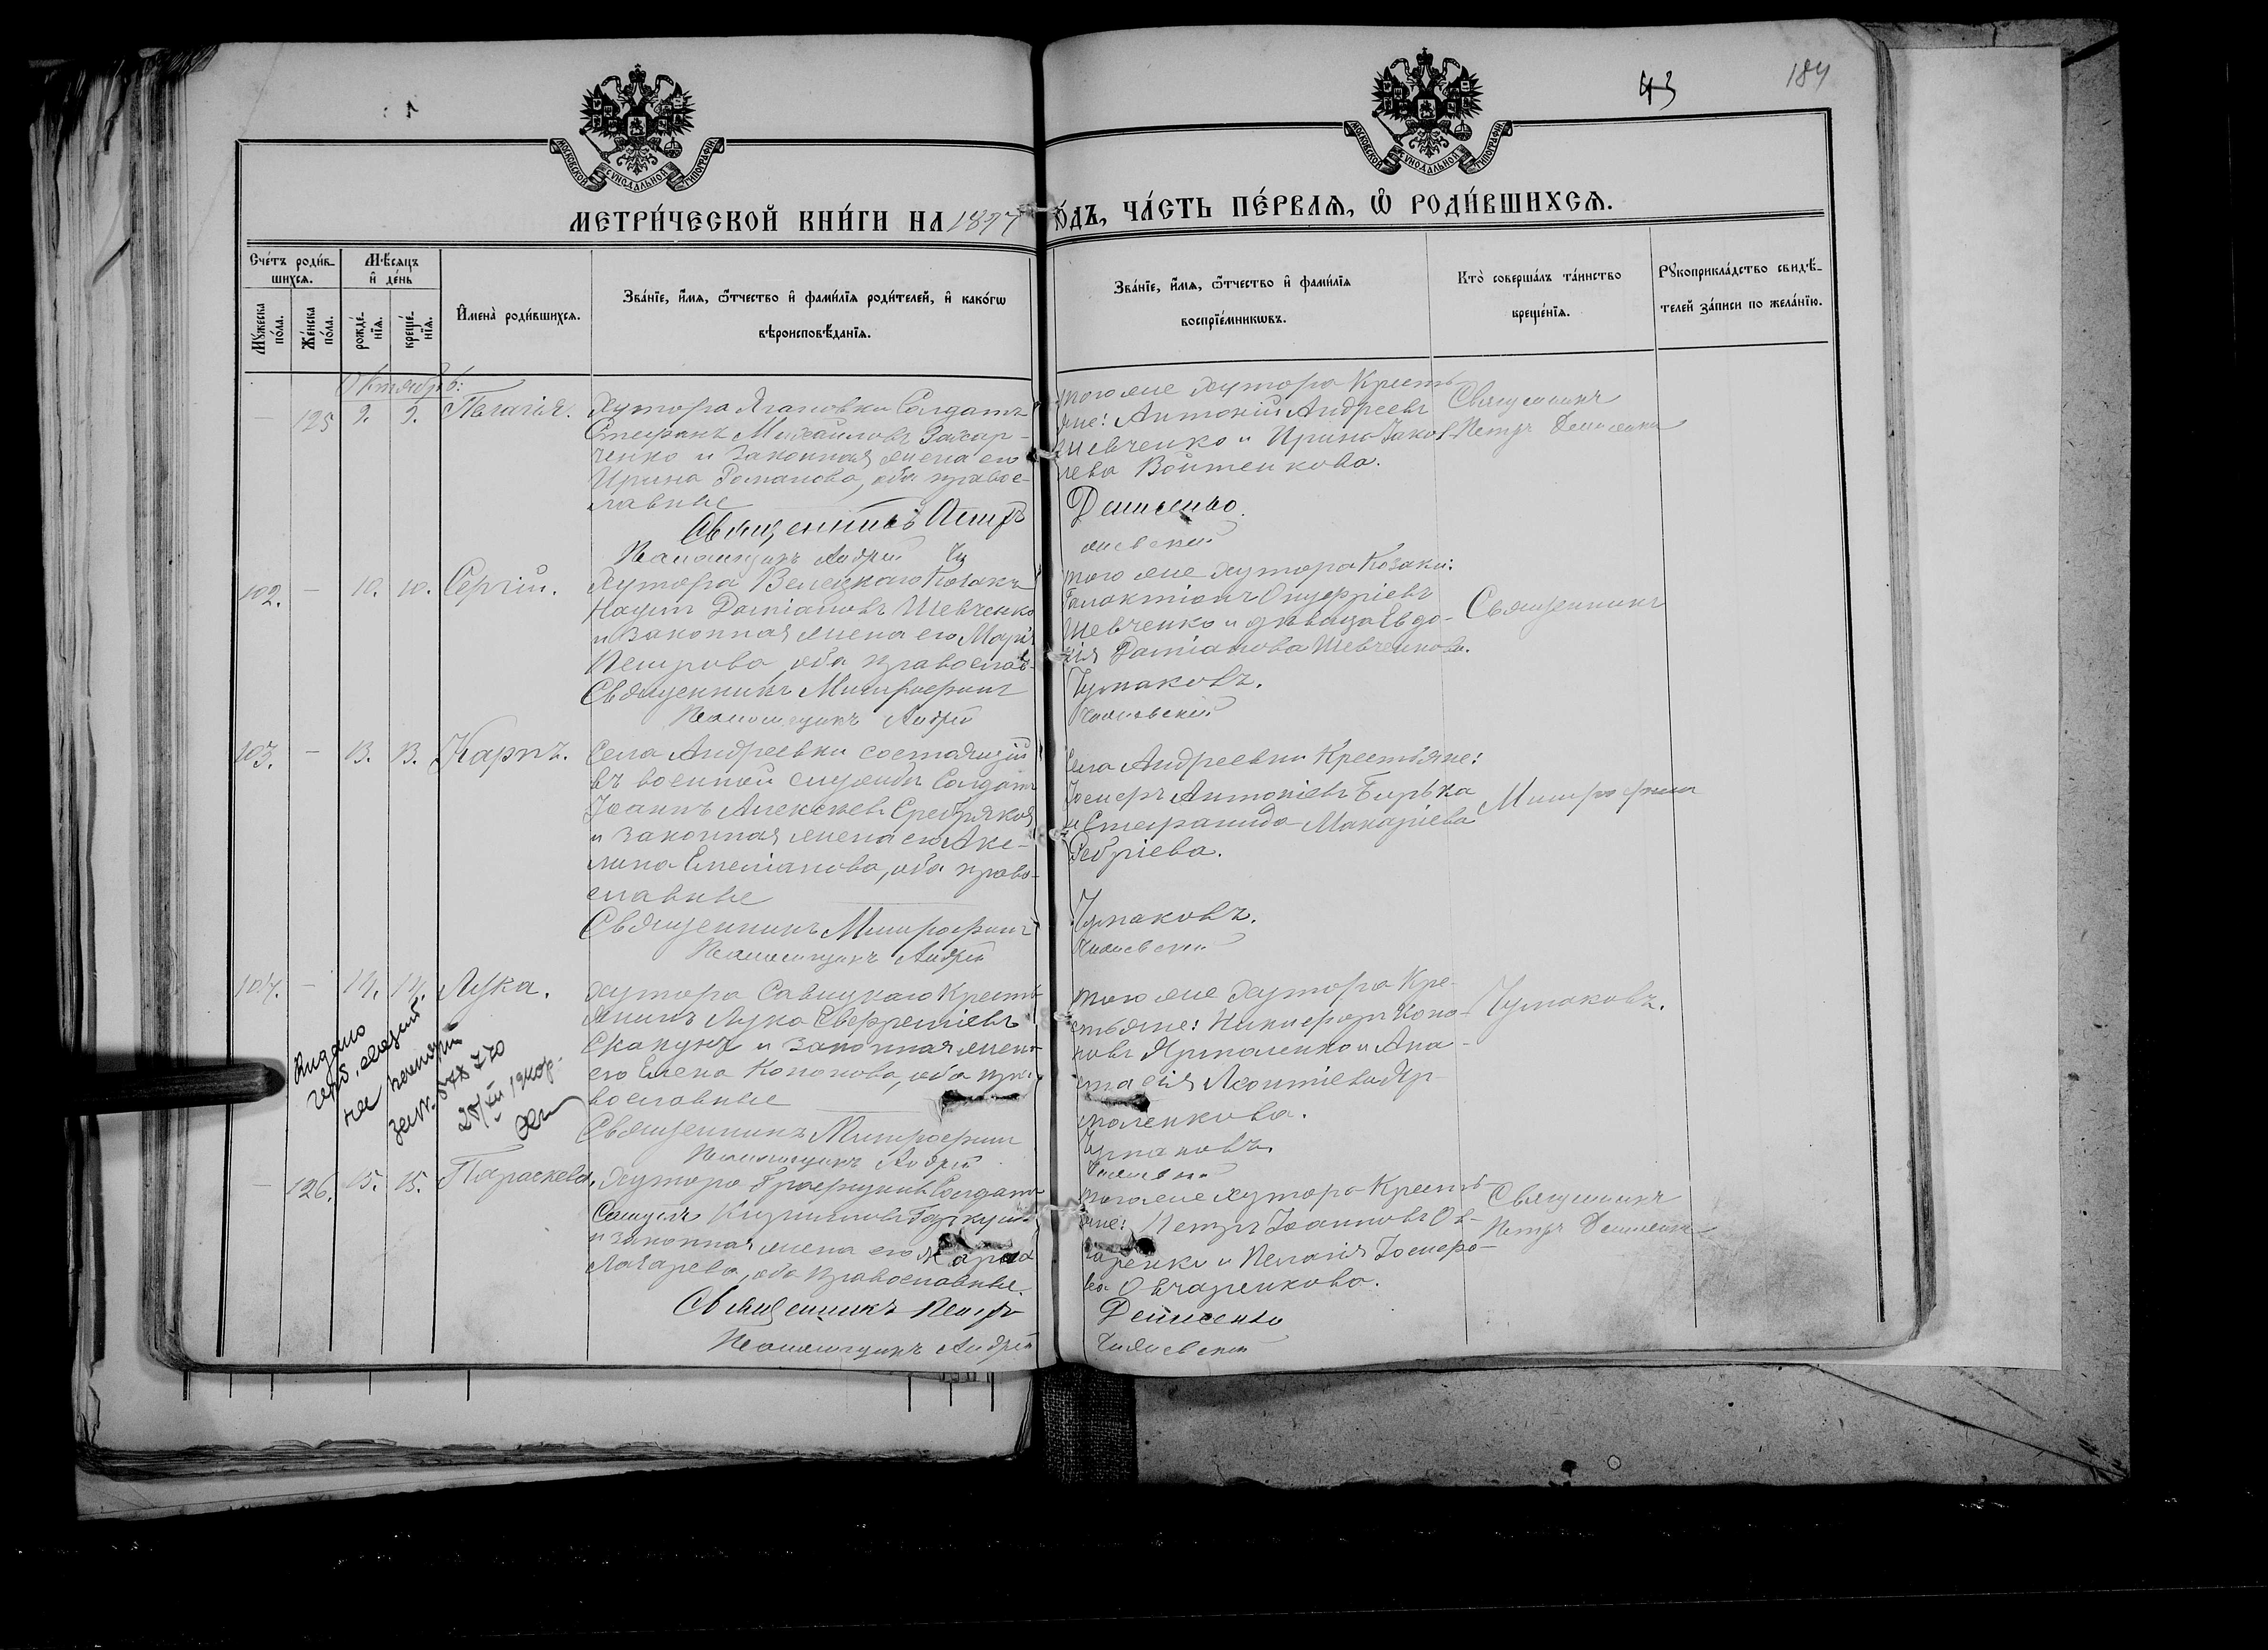 43
184
МОСКОВСКОЙ СѴНОДАЛЬНОЙ ТИПОГРАФІИ
МОСКОВСКОЙ СѴНОДАЛЬНОЙ ТИПОГРАФІИ
МЕТРИ́ЧЕСКОЙ КНИ́ГИ НА 1897 ГО́ДЪ, ЧА́СТЬ ПЕ́РВАѦ, Ѡ҆ РОДИ́ВШИХСѦ.
Сче́тъ роди́в-
шихсѧ.
Мꙋ́жеска
по́ла.
Же́нска
по́ла.
Мѣ́сѧцъ
и҆ де́нь
рожде́-
нїѧ.
креще́-
нїѧ.
И҆мена̀ роди́вшихсѧ.
Зва́нїе, и҆́мѧ, ѻ҆́тчество и҆ фами́лїѧ роди́телей, и҆ како́гѡ
вѣроисповѣ́данїѧ.
Зва́нїе, и҆́мѧ, ѻ҆́тчество и҆ фами́лїѧ
воспрїе́мникѡвъ.
Кто̀ соверша́лъ та́инство
креще́нїѧ.
Рꙋкоприкла́дство свидѣ́-
телей за́писи по жела́нїю.
Октябрь:
125 2. 2. Пелагія.
Хутора Агановки Солдатъ
Стефанъ Михайловъ Захар-
ченко и законная жена его
Ирина Романова, оба правос-
лавные
Священникъ Петръ
Псаломщикъ Андрей
того же хутора Кресть-
яне: Антоній Андреевъ
Шевченко и Ирина Яков-
лева Войтенкова.
Денисенко.
Священникъ
Петръ Денисенко
102. 10. 10. Сергій.
Хутора Велецкаго Козакъ
Наумъ Даміановъ Шевченко
и законная жена его Марія
Петрова, оба православ-
Священникъ Митрофанъ
Псаломщикъ Андрей
того же хутора Козаки:
Галактіонъ Онуфріевъ
Шевченко и дѣвица Евдо-
кія Даміанова Шевченкова.
Чумаковъ.
Священникъ
103. 13. 13. Карпъ.
Села Андреевки состоящій
въ военной службѣ Солдатъ
Іоаннъ Алексѣевъ Сребряковъ
и законная жена его Аки-
лина Емеліанова, оба право-
славные
Священникъ Митрофанъ
Псаломщикъ Андрей
Села Андреевки Крестьяне:
Іосифъ Антоніевъ Бирька
и Стефанида Макаріева
Чумаковъ.
Митрофанъ
104. 14. 14. Лука.
Хутора Савицкаго Кресть-
янинъ Лука Евфреміевъ
Скакунъ и законная жена
его Елена Кононова, оба пра-
вославные
Священникъ Митрофанъ
Псаломщикъ Андрей
того же хутора Кре-
стьяне: Никифоръ Коно-
новъ Ярмоленко и Ана-
стасія Леонтіева Яр-
моленкова.
Чумаковъ
Чумаковъ.
Видано
на
1940р.
126. 15. 15. Параскева.
Солдатъ
и законная жена его
Лазарева, оба православные.
Священникъ Петръ
Псаломщикъ Андрей
того же хутора Кресть-
яне: Петръ Іоанновъ Ов-
чаренко и Пелагія Іосифо-
ва Овчаренкова.
Денисенко
Священникъ
Петръ Денисенко